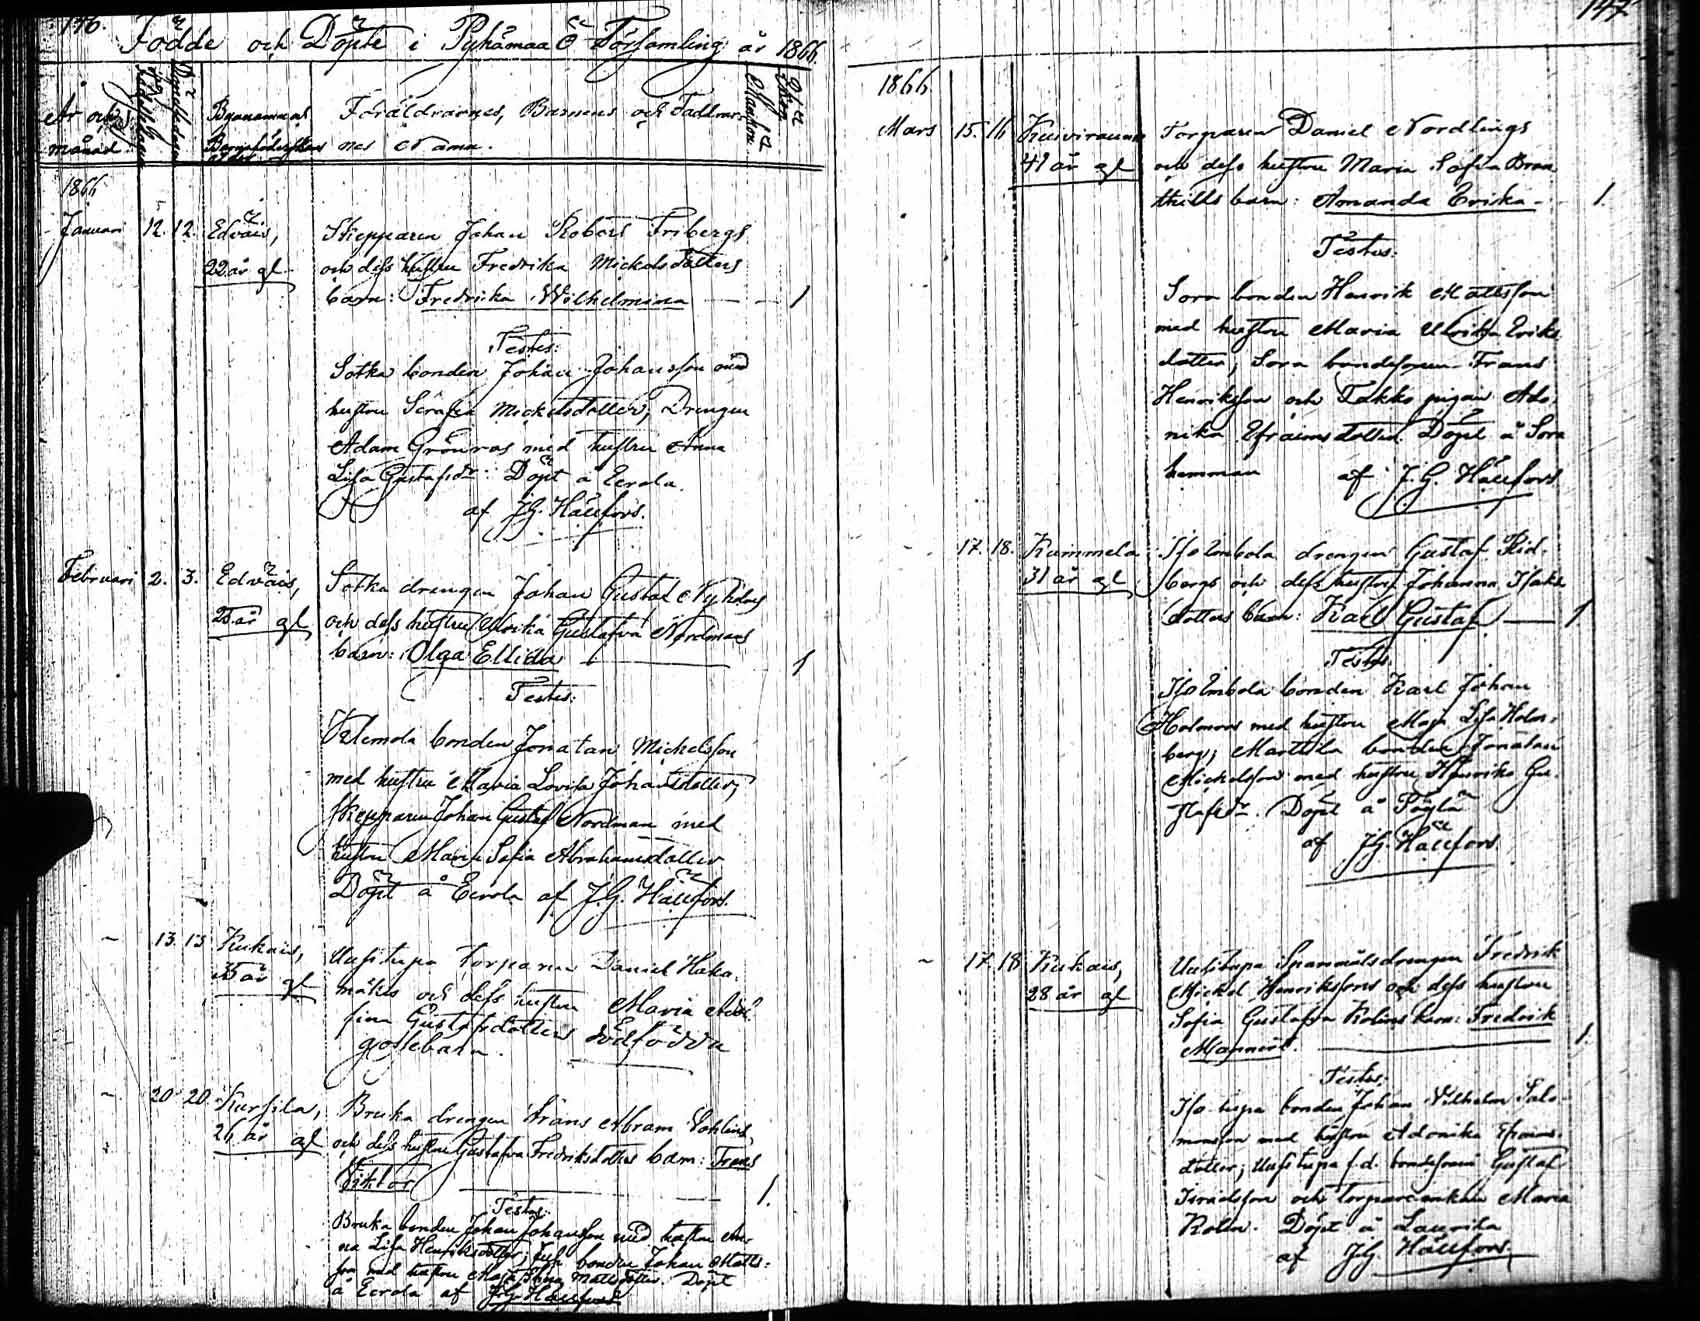 146.
Födde och Döpte i Pyhämaa Ö Församling år 1866.
År och
månad.
Byanamnet
Föräldrarnes, Barnens och Faddrar-
nes Namn.
1866
Januari 12. 12. Edväis,
22 år gl
Skepparen Johan Robert Fribergs
och dess hustru Fredrika Mickelsdotters
barn: Fredrika Wilhelmina 1
Testes:
Sotka bonden Johan Johansson med
hustru Serafia Mickelsdotter, Drengen
Adam Grönros med hustru Anna
Lisa Gustafsdr. Döpt å Eerola.
af J.G. Hällfors.
Februari 2. 3. Edväis,
25 år gl
Sotka drengen Johan Gustaf
och dess hustru Ulrika Gustafva Nordmans
barn: Olga Ellida 1
Testes:
bonden Jonatan Mickelsson
med hustru Maria Lovisa Johansdotter,
skepparen Johan Gustaf Nordman med
hustru Maria Sofia Abrahamsdotter
Döpt å Eerola af J.G. Hällfors.
13. 13 Kukais,
35 år gl
Uusitupa Torparen Daniel Haka
mäkis och dess hustru Maria Adol
fina Gustafsdotters dödfödda
gossebarn.
20. 20. Kursila,
26 år gl
Bruka drengen Frans Abram
och dess hustru Gustafva Fredriksdotters barn: Frans
Viktor 1.
Testes:
Bruka bonden Johan Johansson med hustru An-
na Lisa Henriksdotter; bonden Johan Matts-
son med hustru Maja Stina Mattsdotter. Döpt
å Eerola af J.G. Hällfors
147
1866.
Mars 15. 16
41 år gl
Torparen Daniel Nordlings
och dess hustru Maria Sofia Bran
thills barn: Amanda Erika 1.
Testes:
Sora bonden Henrik Mattsson
med hustru Maria Ulrika Eriks
dotter; Sora bondesonen Frans
Henriksson och Takko pigan Ado-
nika Efraimsdotter. Döpt å Sora
hemman af J.G. Hällfors
17. 18. Kammela
31 år gl
Iso Imbola drengen Gustaf Rid-
bergs och dess hustru Johanna Isaks
dotters barn: Karl Gustaf 1
Testes:
Iso Imbola bonden Karl Johan
med hustru Maja Lisa Holm-
berg; Marttila bonden Jonatan
Mickelsson med hustru Henrika Gu-
stafsdr. Döpt å
af J.G. Hällfors.
17. 18 Kukais,
28 år gl
Uusitupa Spannmålsdrengen Fredrik
Mickel Henrikssons och dess hustru
Sofia Gustafva Kolins barn: Fredrik
1.
Testes:
Iso tupa bonden Johan Wilhelm Salo-
monson med hustru Adonika Efraims-
dotter; Uusitupa f.d. bondesonen Gustaf
Israelsson och torpareenkan Maria
Kolin. Döpt å Laurila
af J.G. Hällfors